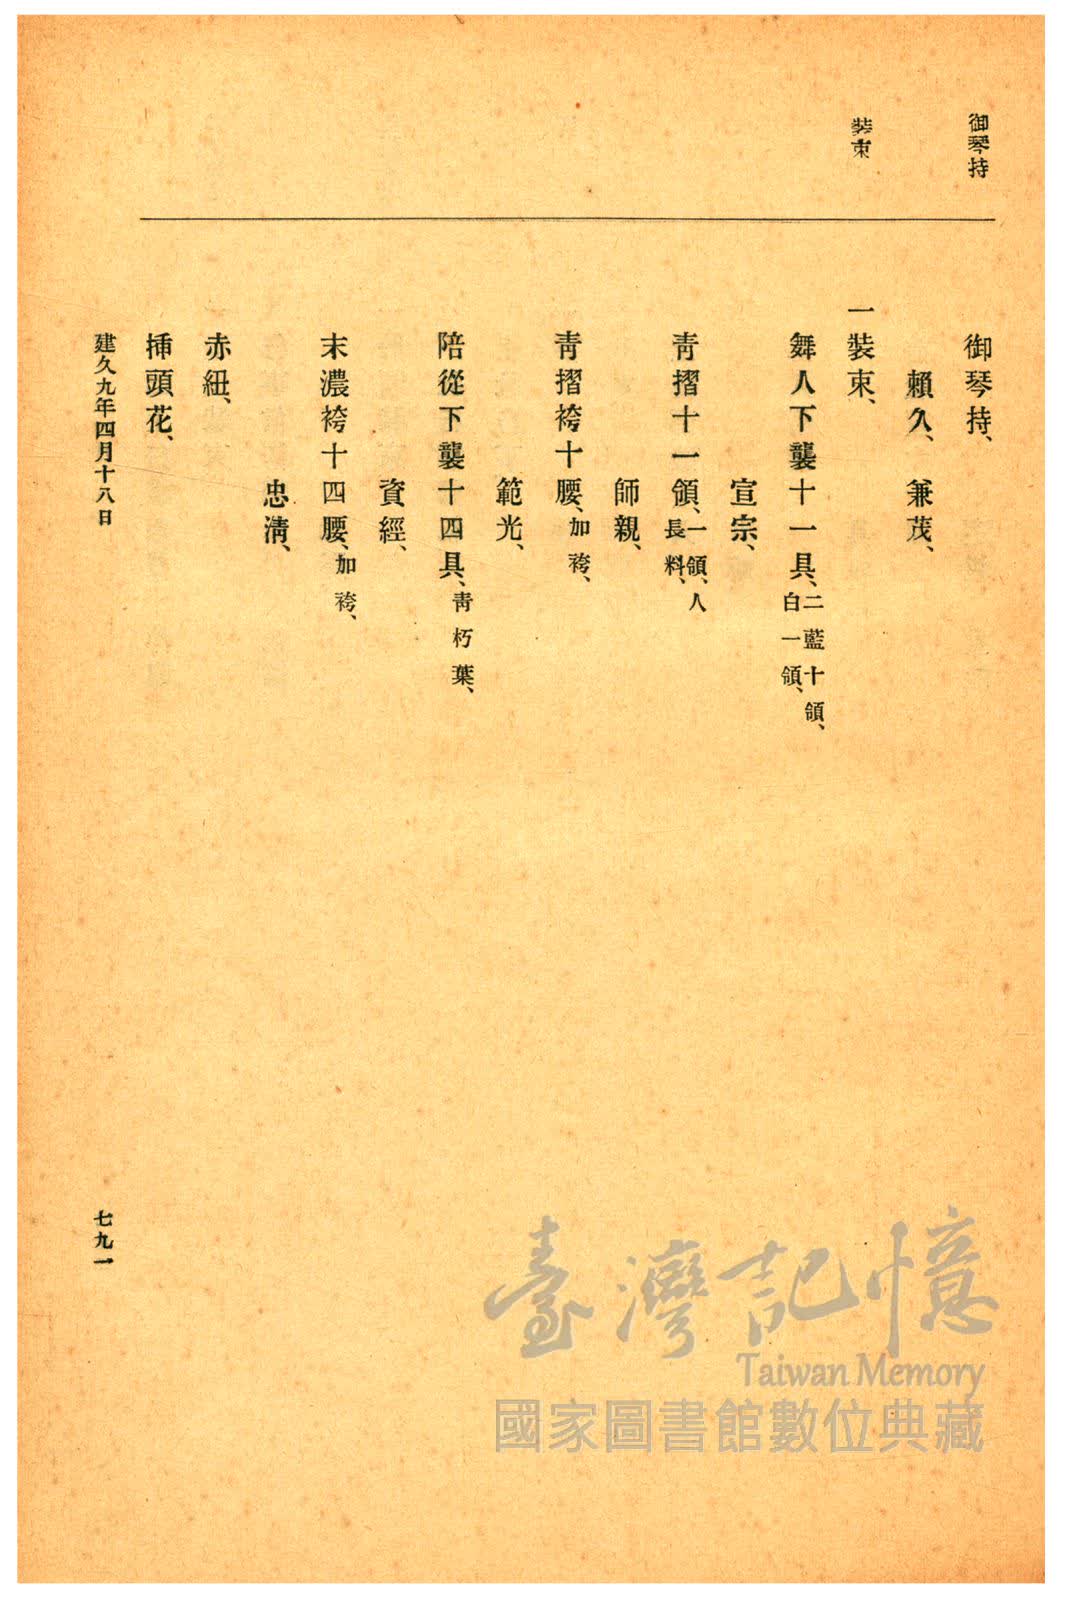 御琴持
裝束
御琴持、
賴久、兼茂、
一裝束、
舞人下襲十一具、二藍十領、
白一領、
宣宗、
靑摺十一領、一領、人
長料、
師親、
靑摺袴十腰、加袴、
範光、
陪從下襲十四具、靑朽葉、
資經、
末濃袴十四腰、加袴、
忠淸、
赤紐、
揷頭花、
建久九年四月十八日
七九一
臺灣記憶
Taiwan Memory
國家圖書館數位典藏